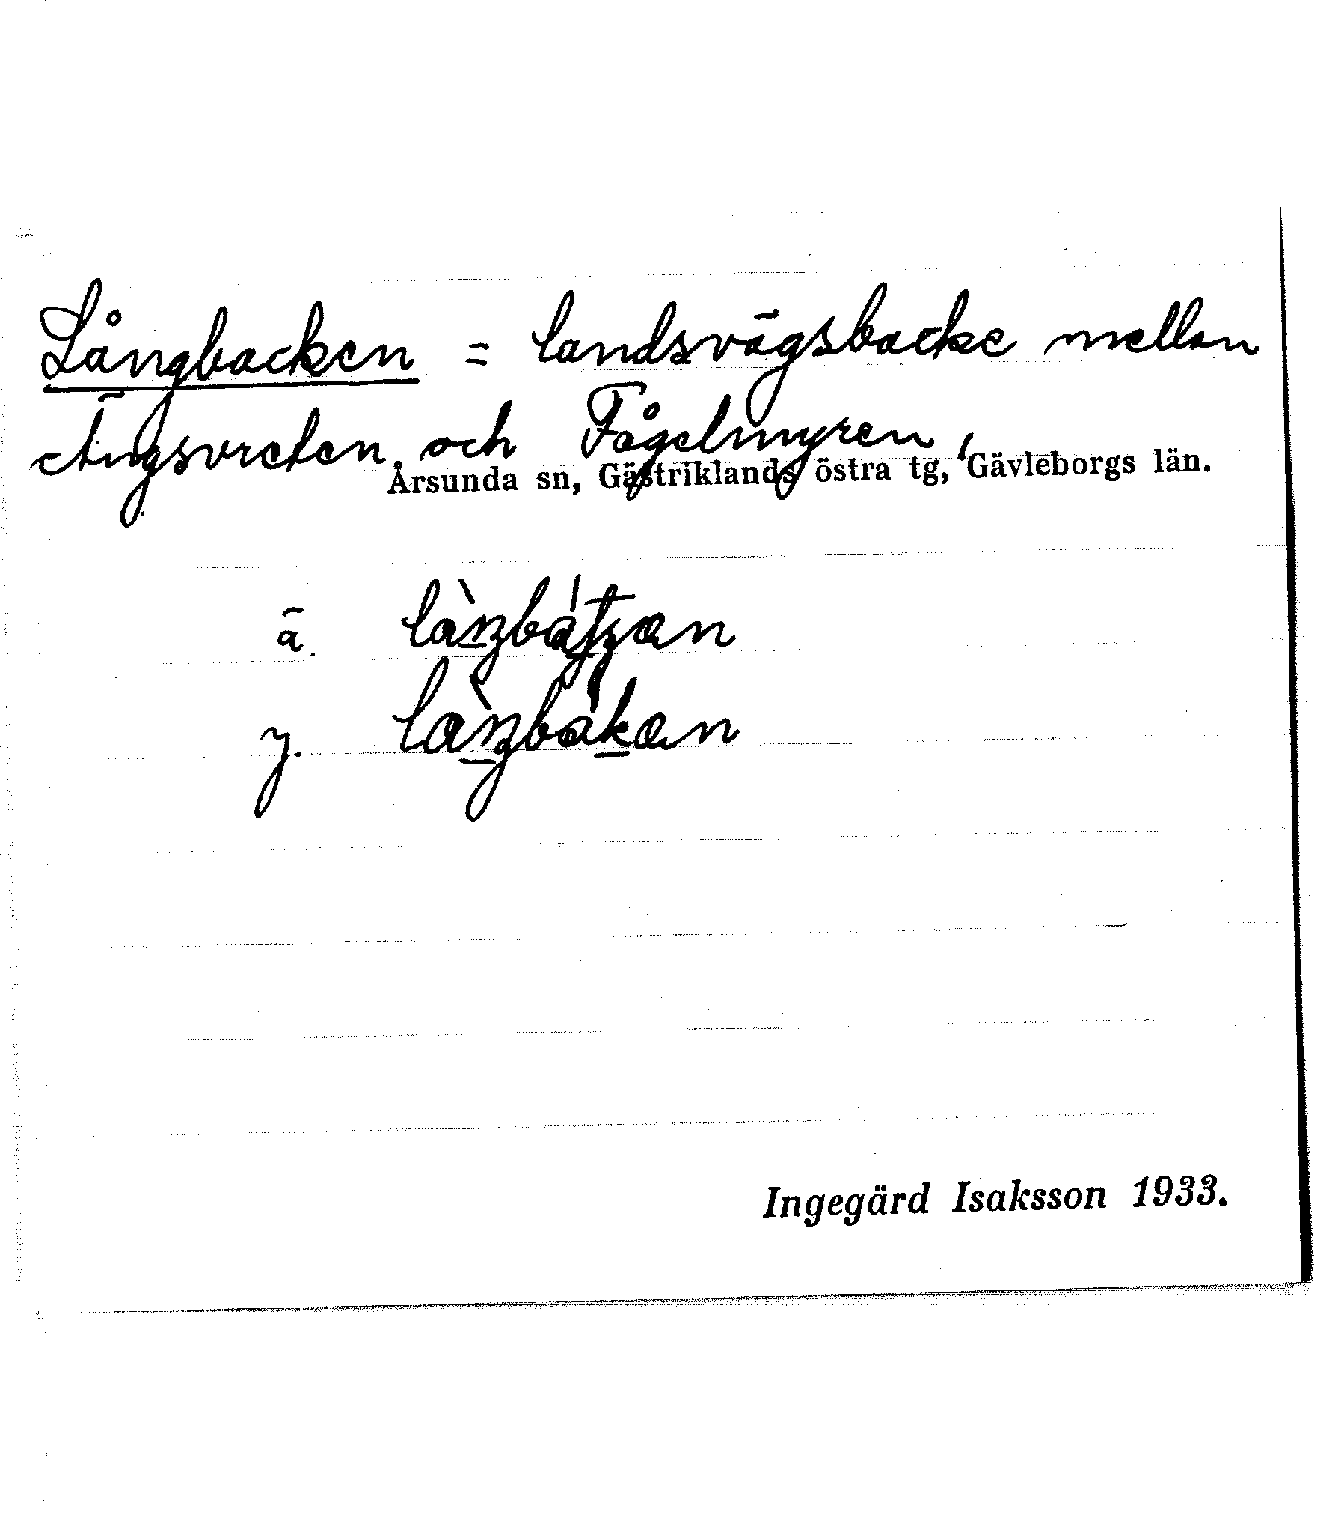 Långbacken = landsvägsbacke mellan
Ängsvreten och Fågelmyren,
Årsunda sn, Gästriklands östra tg, Gävleborgs län.
ä.
y.
Ingegärd Isaksson 1933.